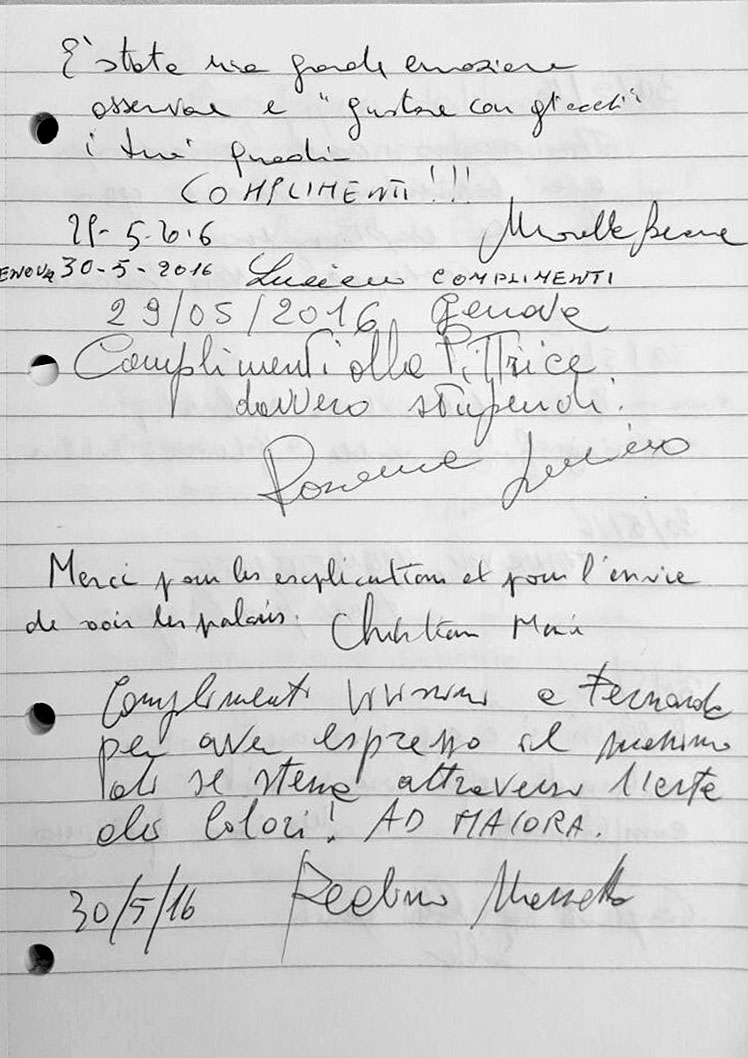 E' stata una grande emozione
osservare e "gustare con gli occhi"
i tuoi quadri
COMPLIMENTI!!!
29-5-2016
ENOVA 30-5-2016 Luciano COMPLIMENTI
29/05/2016 Genova
Complimenti alla Pittrice
davvero stupendi!
Merci pour les explications et pour l'envie
de voir les palais. Christian Maria
Complimenti vivissimi a Fernanda
per aver espresso il massimo
di se stessa attraverso l'arte
dei Colori! AD MAIORA.
30/5/16